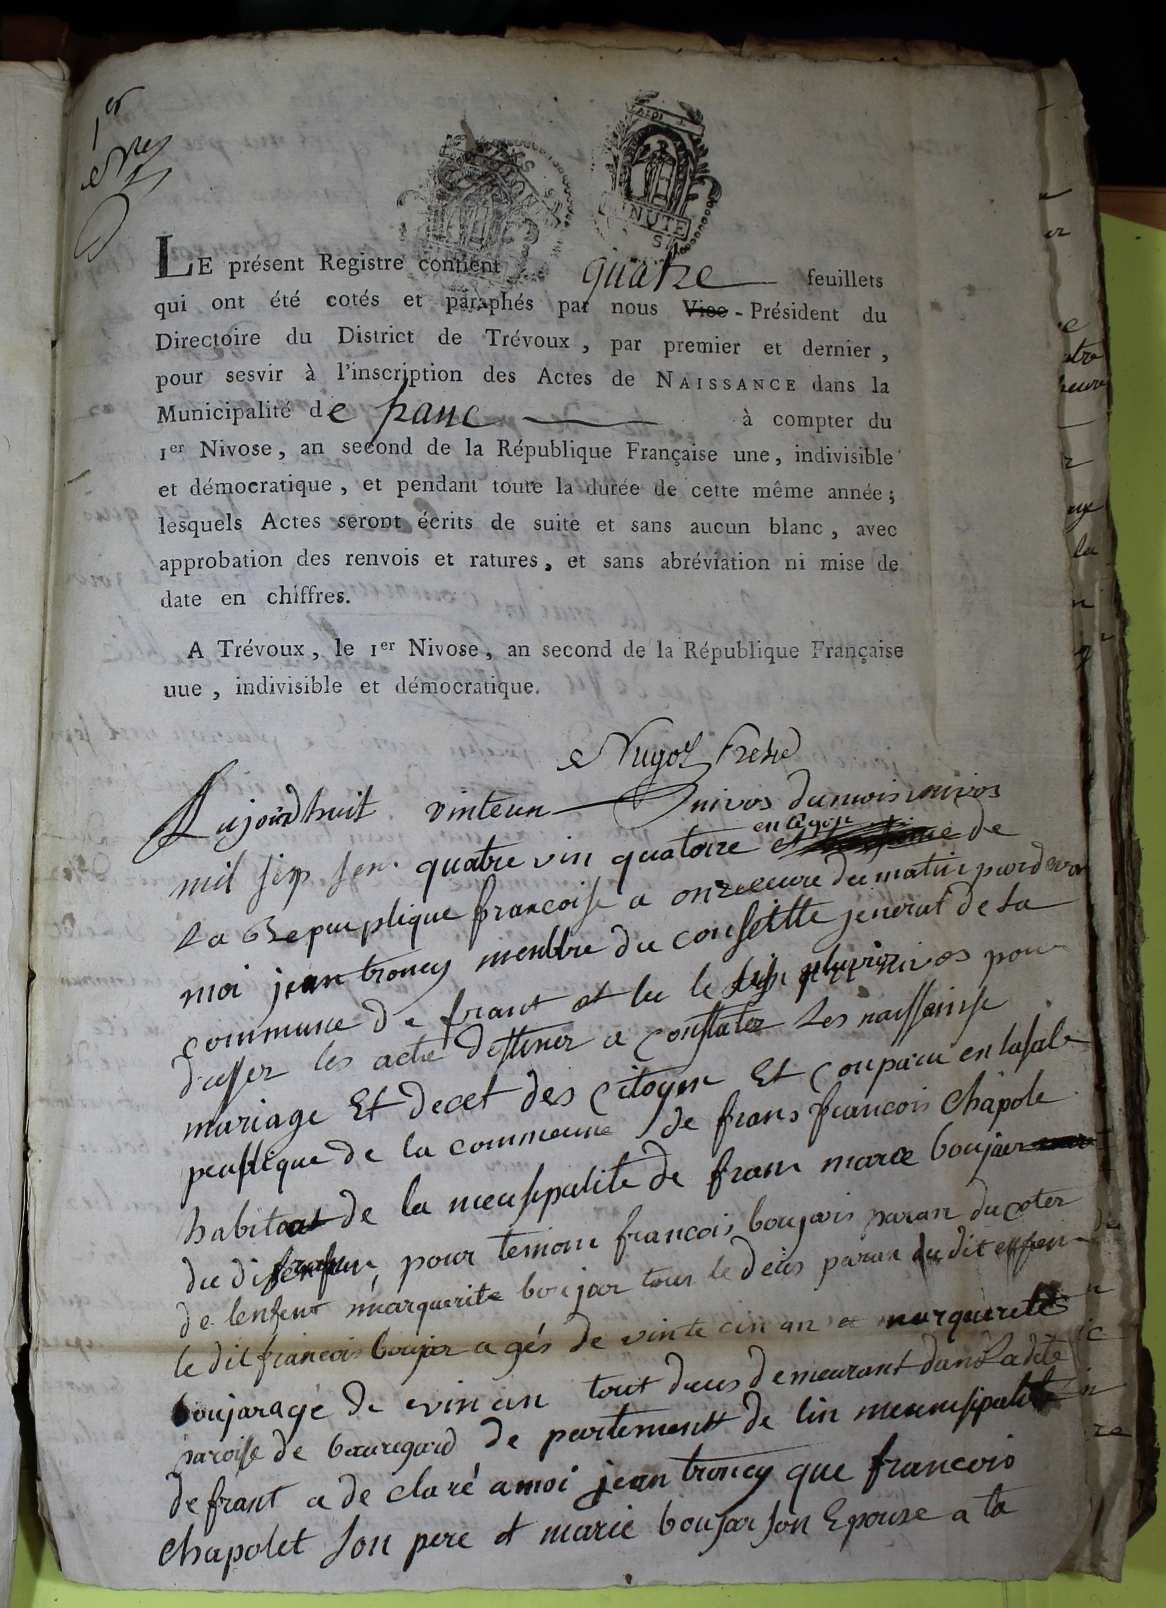 1er
LE présent Registre contient quatre feuillets
qui ont été cotés et paraphés par nous Vice - Président du
Directoire du District de Trévoux, par premier et dernier,
pour sesvir à l'inscription des Actes de NAISSANCE dans la
Municipalité de franc à compter du
1er Nivose, an second de la République Française une, indivisible
et démocratique, et pendant toute la durée de cette même année;
lesquels Actes seront écrits de suite et sans aucun blanc, avec
approbation des renvois et ratures, et sans abréviation ni mise de
date en chiffres.
A Trévoux, le 1er Nivose, an second de la République Française
uue, indivisible et démocratique.
MINUTE
aujourdhuit vinteun nivos du mois nivos
mil sep sen quatre vin quatorze de
La Republique francoise a onzeeure du matin pardevan
moi jean troncy menbre du conseille jeneral de la
commune de frant et lu le nivos pour
dresser les acte destiner a constater les naissense
mariage Et decet des citoyen Et conparu en lasale
peublique de la commeune de frans francois Chapole
habitant de la meusipalite de franc marie boujar
du di pour temoin francois boujars paran du coter
de lenfent marguerite boujar tous le deus paran du dit enfen
le dit francois boujar agés de vinte cin an et marguerite
boujar agé de vin an tout deus demeurant dans La dite
paroisse de beauregard de partement de lin meunisipalite
de frant a de claré amoi jean troncy que francois
Chapolet son pere et marie boujar son Epouse a la